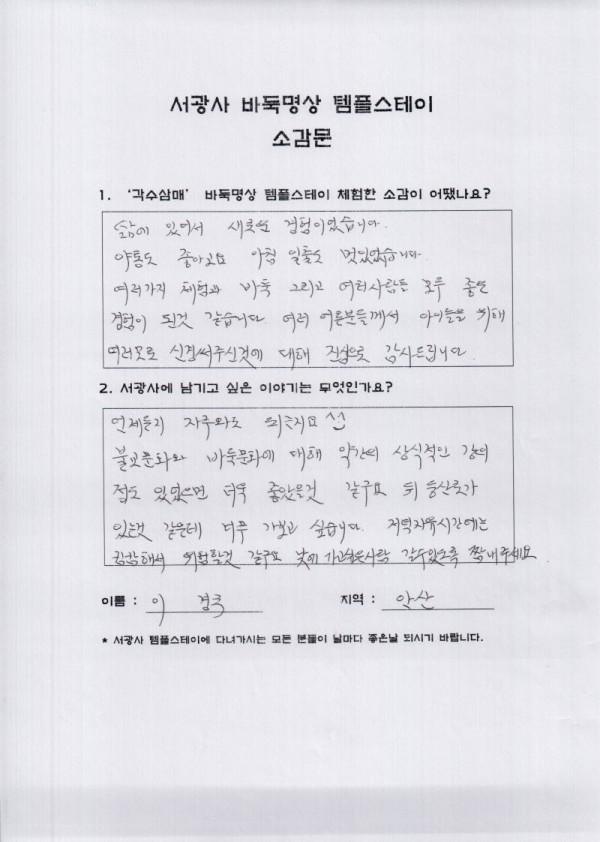 서광사 바둑명상 템플스테이
소감문
1. '각수삼매' 바둑명상 템플스테이 체험한 소감이 어땠나요?
삶에 있어서 새로운 경험이었습니다.
약통도 좋아고요 아침 일출도 멋있었습니다.
여러가지 체험과 바둑 그리고 여러사람들 모두 좋은
경험이 된것 같습니다. 여러 어른분들께서 아이들을 위해
여러모로 신경써주신것에 대해 진심으로 감사드립니다.
2. 서광사에 남기고 싶은 이야기는 무엇인가요?
언제든지 자주와도 되는지요
불교문화와 바둑문화에 대해 약간의 상식적인 강의
점도 있었으면 더욱 좋았을것 같구요 뒤 등산로가
있는것 같은데 너무 가보고 싶습니다. 저녁자유시간에는
캄캄해서 위험할것 같구요 낮에 가고싶은사람 갈수있도록 짬내주세요
이름 : 이 경
지역 : 안산
* 서광사 템플스테이에 다녀가시는 모든 분들이 날마다 좋은날 되시기 바랍니다.